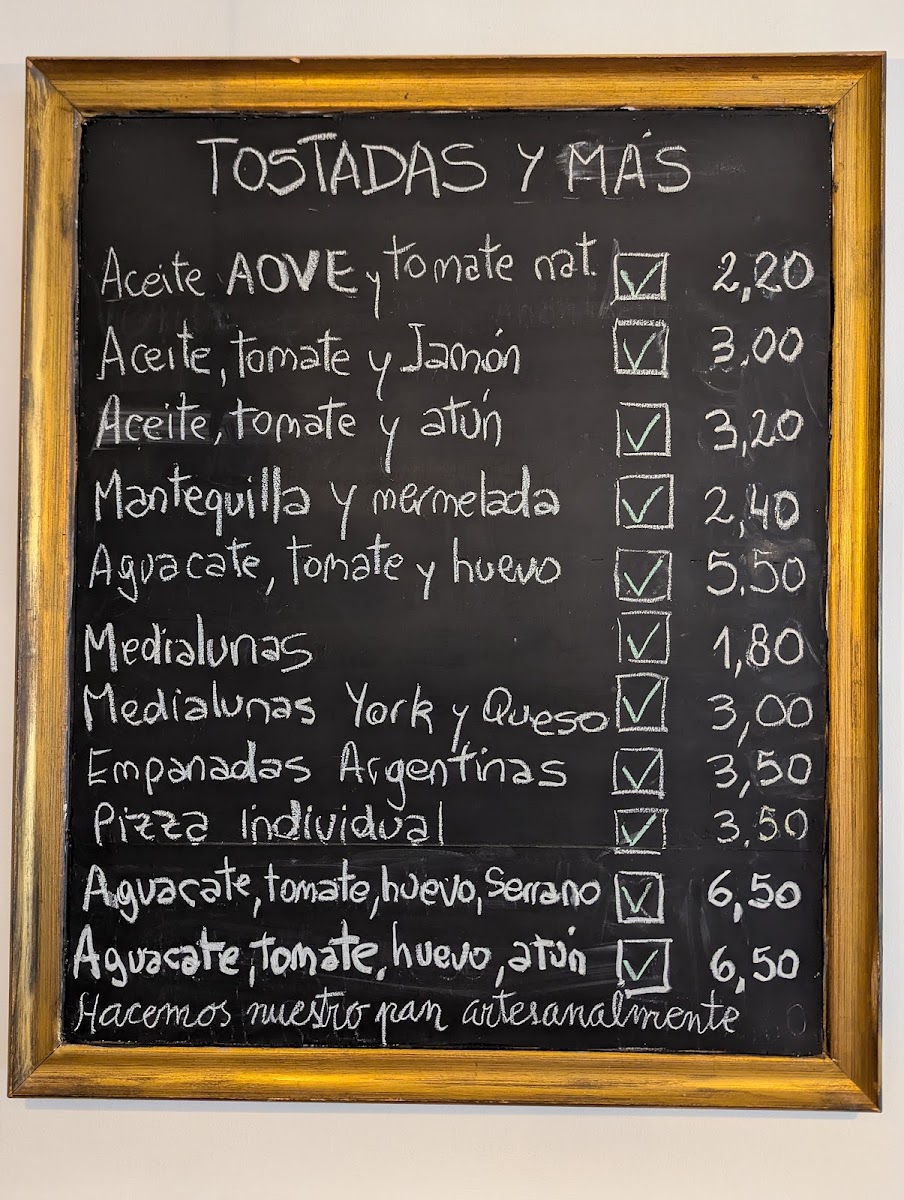 TOSTADAS Y MÁS
Aceite AOVE y tomate nat. 2,20
Aceite, tomate y Jamón 3,00
Aceite, tomate y atún 3,20
Mantequilla y mermelada 2,40
Aguacate, tomate y huevo 5,50
Medialunas 1,80
Medialunas York y Queso 3,00
Empanadas Argentinas 3,50
Pizza individual 3,50
Aguacate, tomate, huevo, Serrano 6,50
Aguacate, tomate, huevo, atún 6,50
Hacemos nuestro pan artesanalmente